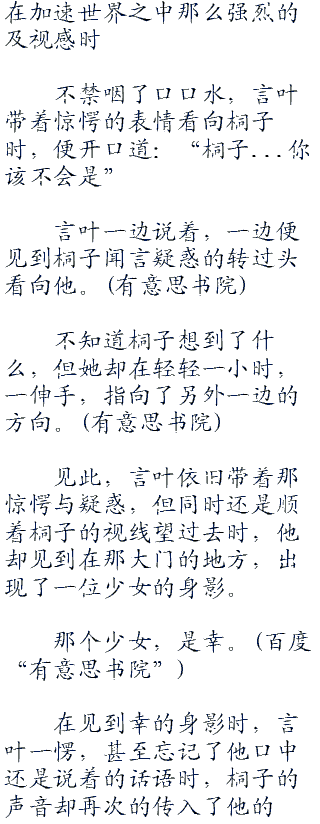 在加速世界之中那么强烈的
及视感时
不禁咽了口口水，言叶
带着惊愕的表情看向桐子
时，便开口道：“桐子...你
该不会是”
言叶一边说着，一边便
见到桐子闻言疑惑的转过头
看向他。(有意思书院)
不知道桐子想到了什
么，但她却在轻轻一小时，
一伸手，指向了另外一边的
方向。(有意思书院)
见此，言叶依旧带着那
惊愕与疑惑，但同时还是顺
着桐子的视线望过去时，他
却见到在那大门的地方，出
现了一位少女的身影。
那个少女，是幸。(百度
“有意思书院”)
在见到幸的身影时，言
叶一愣，甚至忘记了他口中
还是说着的话语时，桐子的
声音却再次的传入了他的